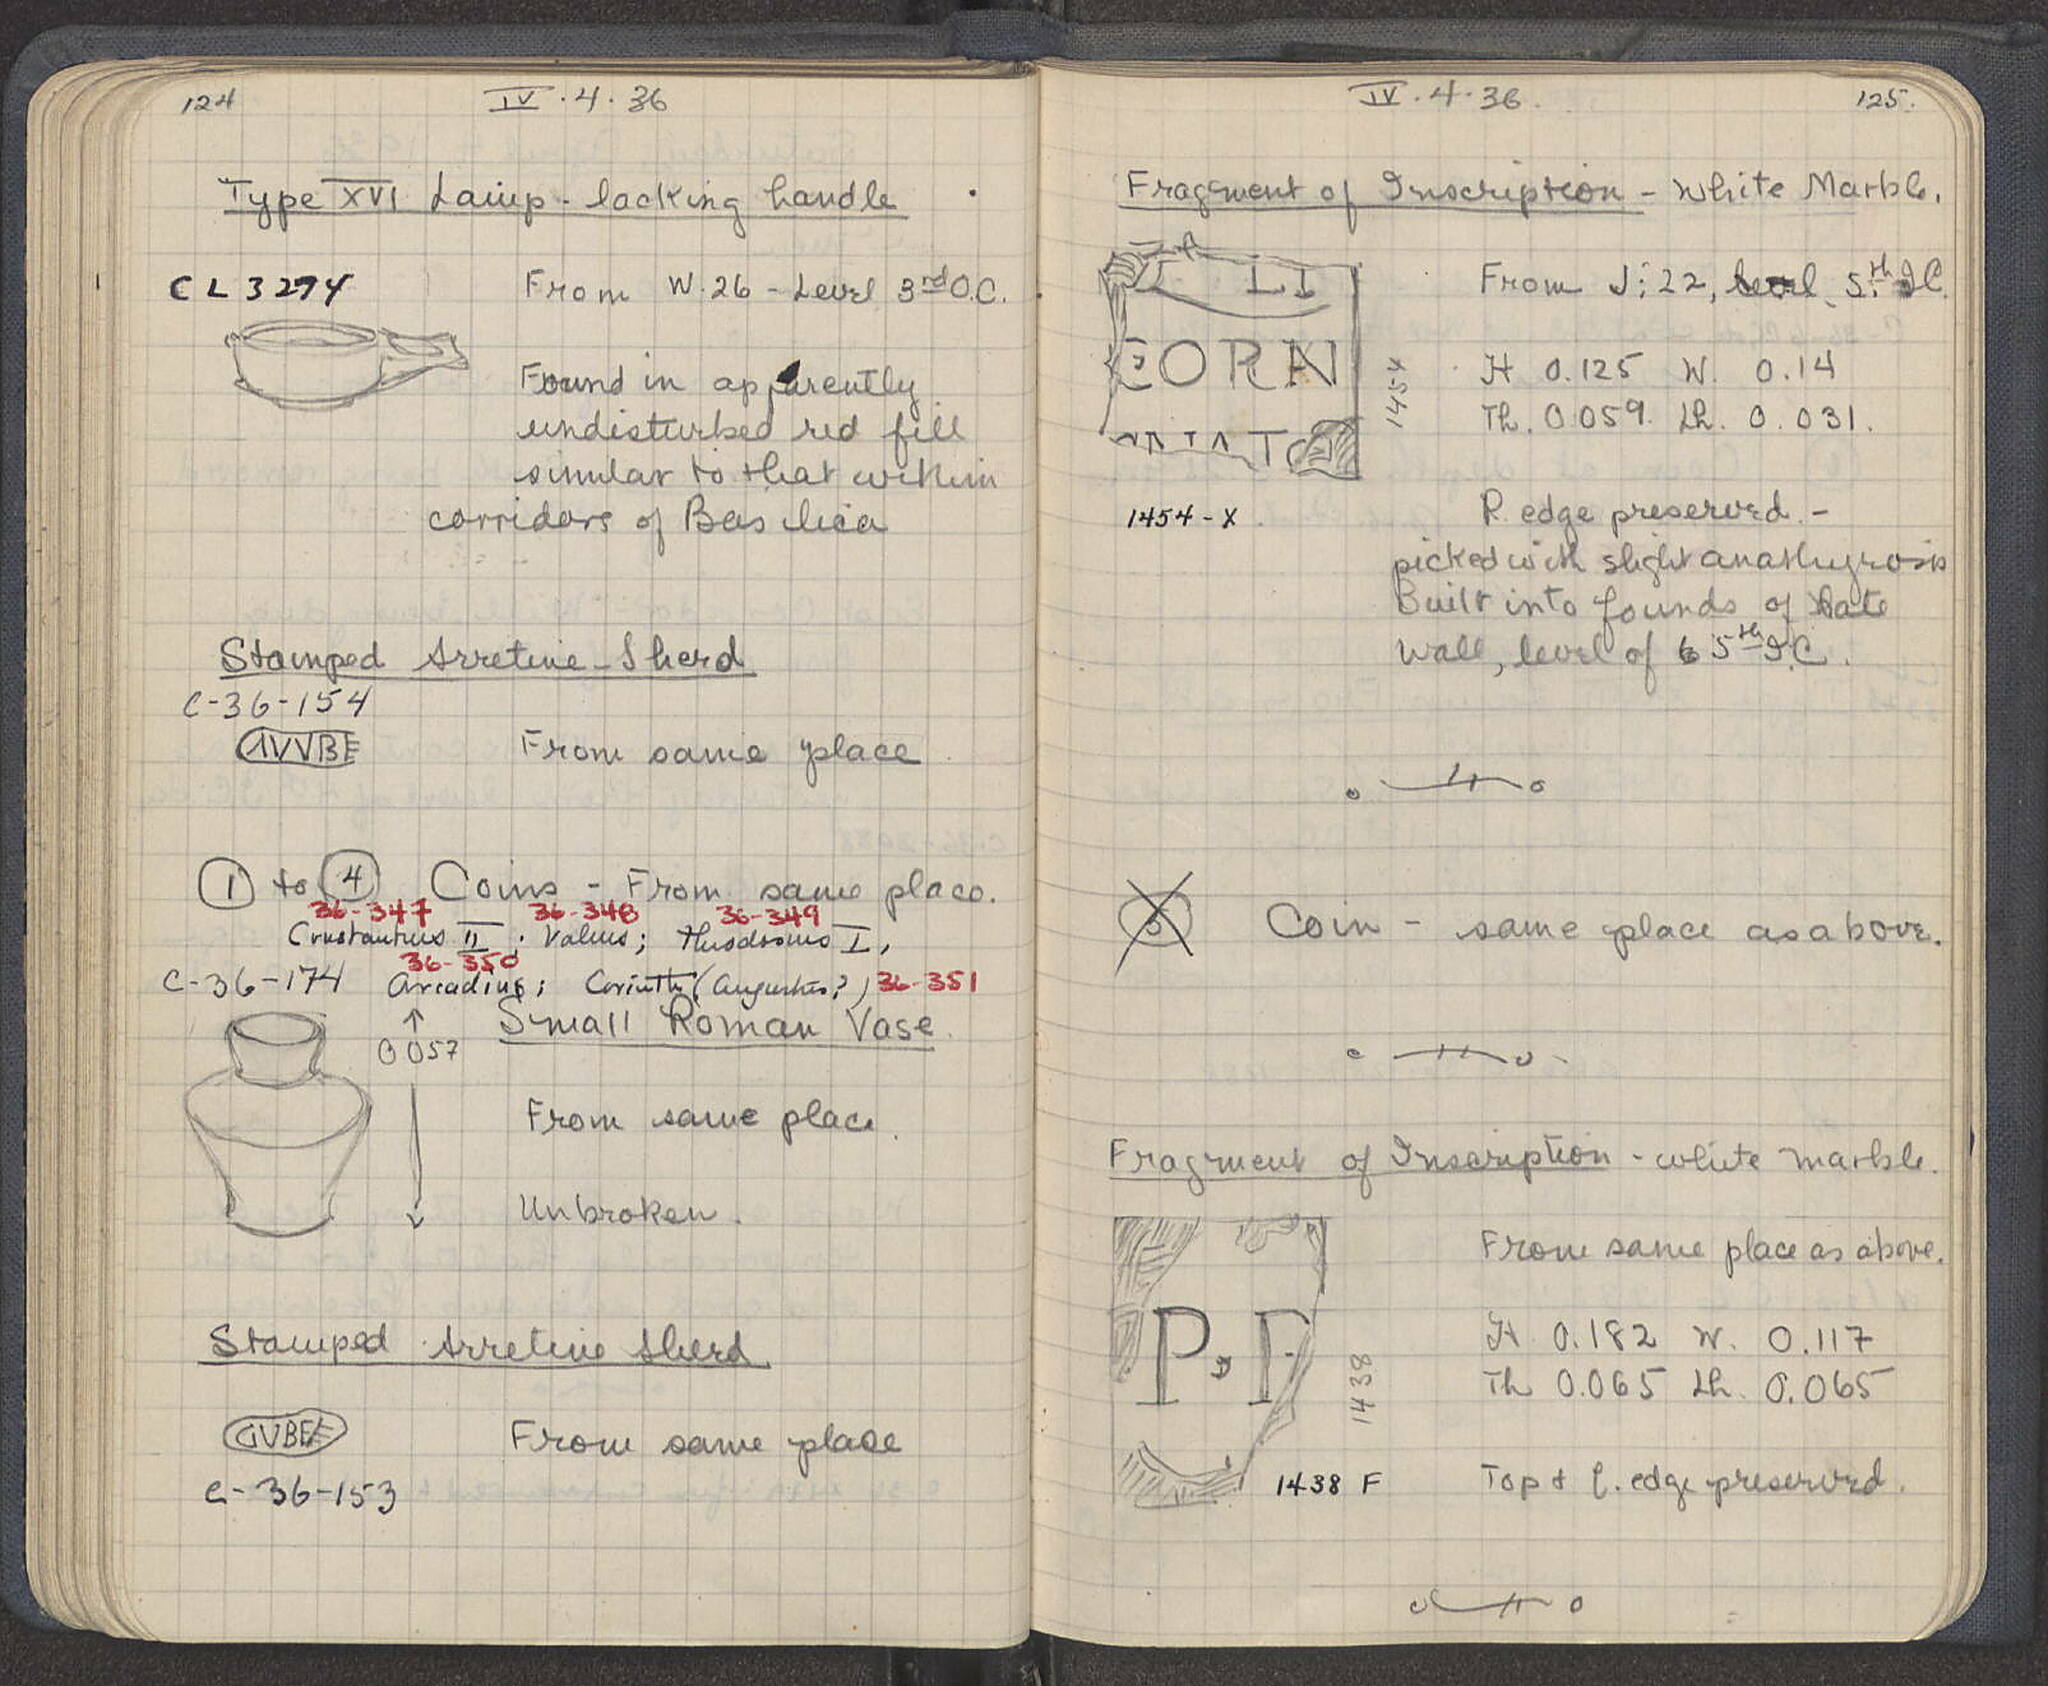 124
IV · 4 · 36
Type XVI Lamp - lacking handle
CL 3274
From W. 26 - Level 3rd O.C.
Found in apparently
undisturbed red fill
similar to that within
corridors of Basilica
Stamped Arretine Sherd
C-36-154
From same place
1 to 4 Coins - From same place.
36-347 36-348 36-349
Constantius II; Valens; Theodosius I,
36-350
C-36-174 Arcadius; Corinth (Augustus?) 36-351
Small Roman Vase
0 057
From same place.
Unbroken.
Stamped Arretine Sherd
From same place
C-36-153
IV · 4 · 36.
125.
Fragment of Inscription - White Marble.
LI
CORN
From J; 22, level 5th I C.
H 0.125 W. 0.14
Th. 0.059. Lh. 0.031.
145x
1454-X
R. edge preserved. -
picked with slight anathyrosis
Built into founds of late
wall, level of 5th I.C.
5 Coin - same place as above.
Fragment of Inscription - white marble.
From same place as above.
P · F
H 0.182 W. 0.117
Th 0.065 Lh. 0.065
1438
1438 F
Top & l. edge preserved.